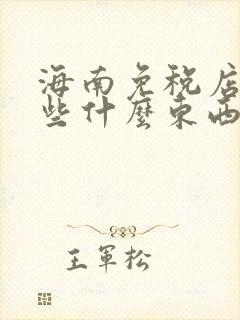 海南免税店
些什麼東西
王軍松